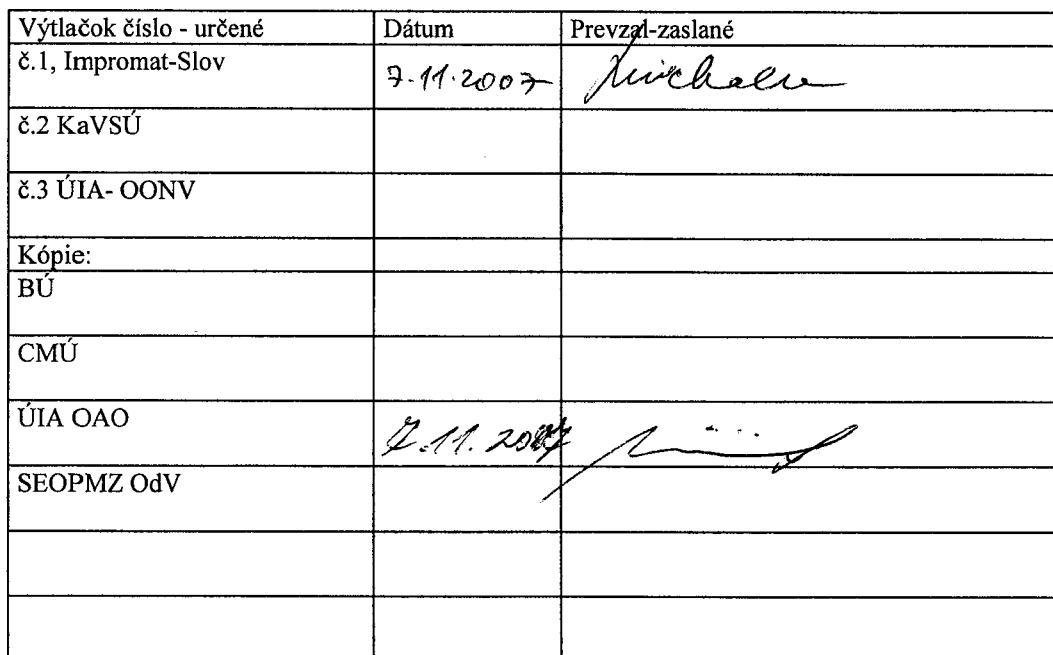 Výtlačok číslo - určené Dátum Prevzal-zaslané
č.1, Impromat-Slov 7.11.2007
č.2 KaVSÚ
č.3 ÚIA- OONV
Kópie:
BÚ
CMÚ
ÚIA OAO 7.11.2007
SEOPMZ OdV